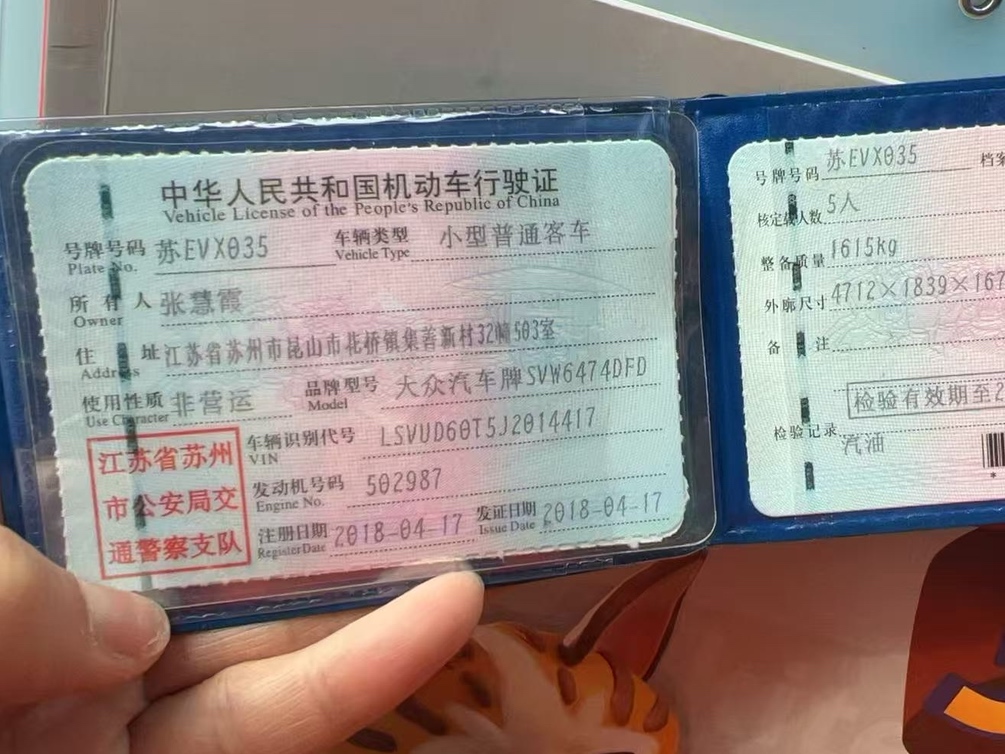 中华人民共和国机动车行驶证
Vehicle License of the People's Republic of China
号牌号码 苏EVX035 车辆类型 小型普通客车
Plate No. Vehicle Type
所有人 张慧霞
Owner
住址 江苏省苏州市昆山市花桥镇集善新村32幢503室
Address
使用性质 非营运 品牌型号 大众汽车牌SVW6474DFD
Use Character Model
车辆识别代号 LSVUD60T5J2014417
VIN
发动机号码 502987
Engine No.
注册日期 2018-04-17 发证日期 2018-04-17
Register Date Issue Date
江苏省苏州
市公安局交
通警察支队
号牌号码 苏EVX035 档案
核定载人数 5人
整备质量 1615kg
外廓尺寸 4712×1839×167
备注
检验有效期至
检验记录
汽油